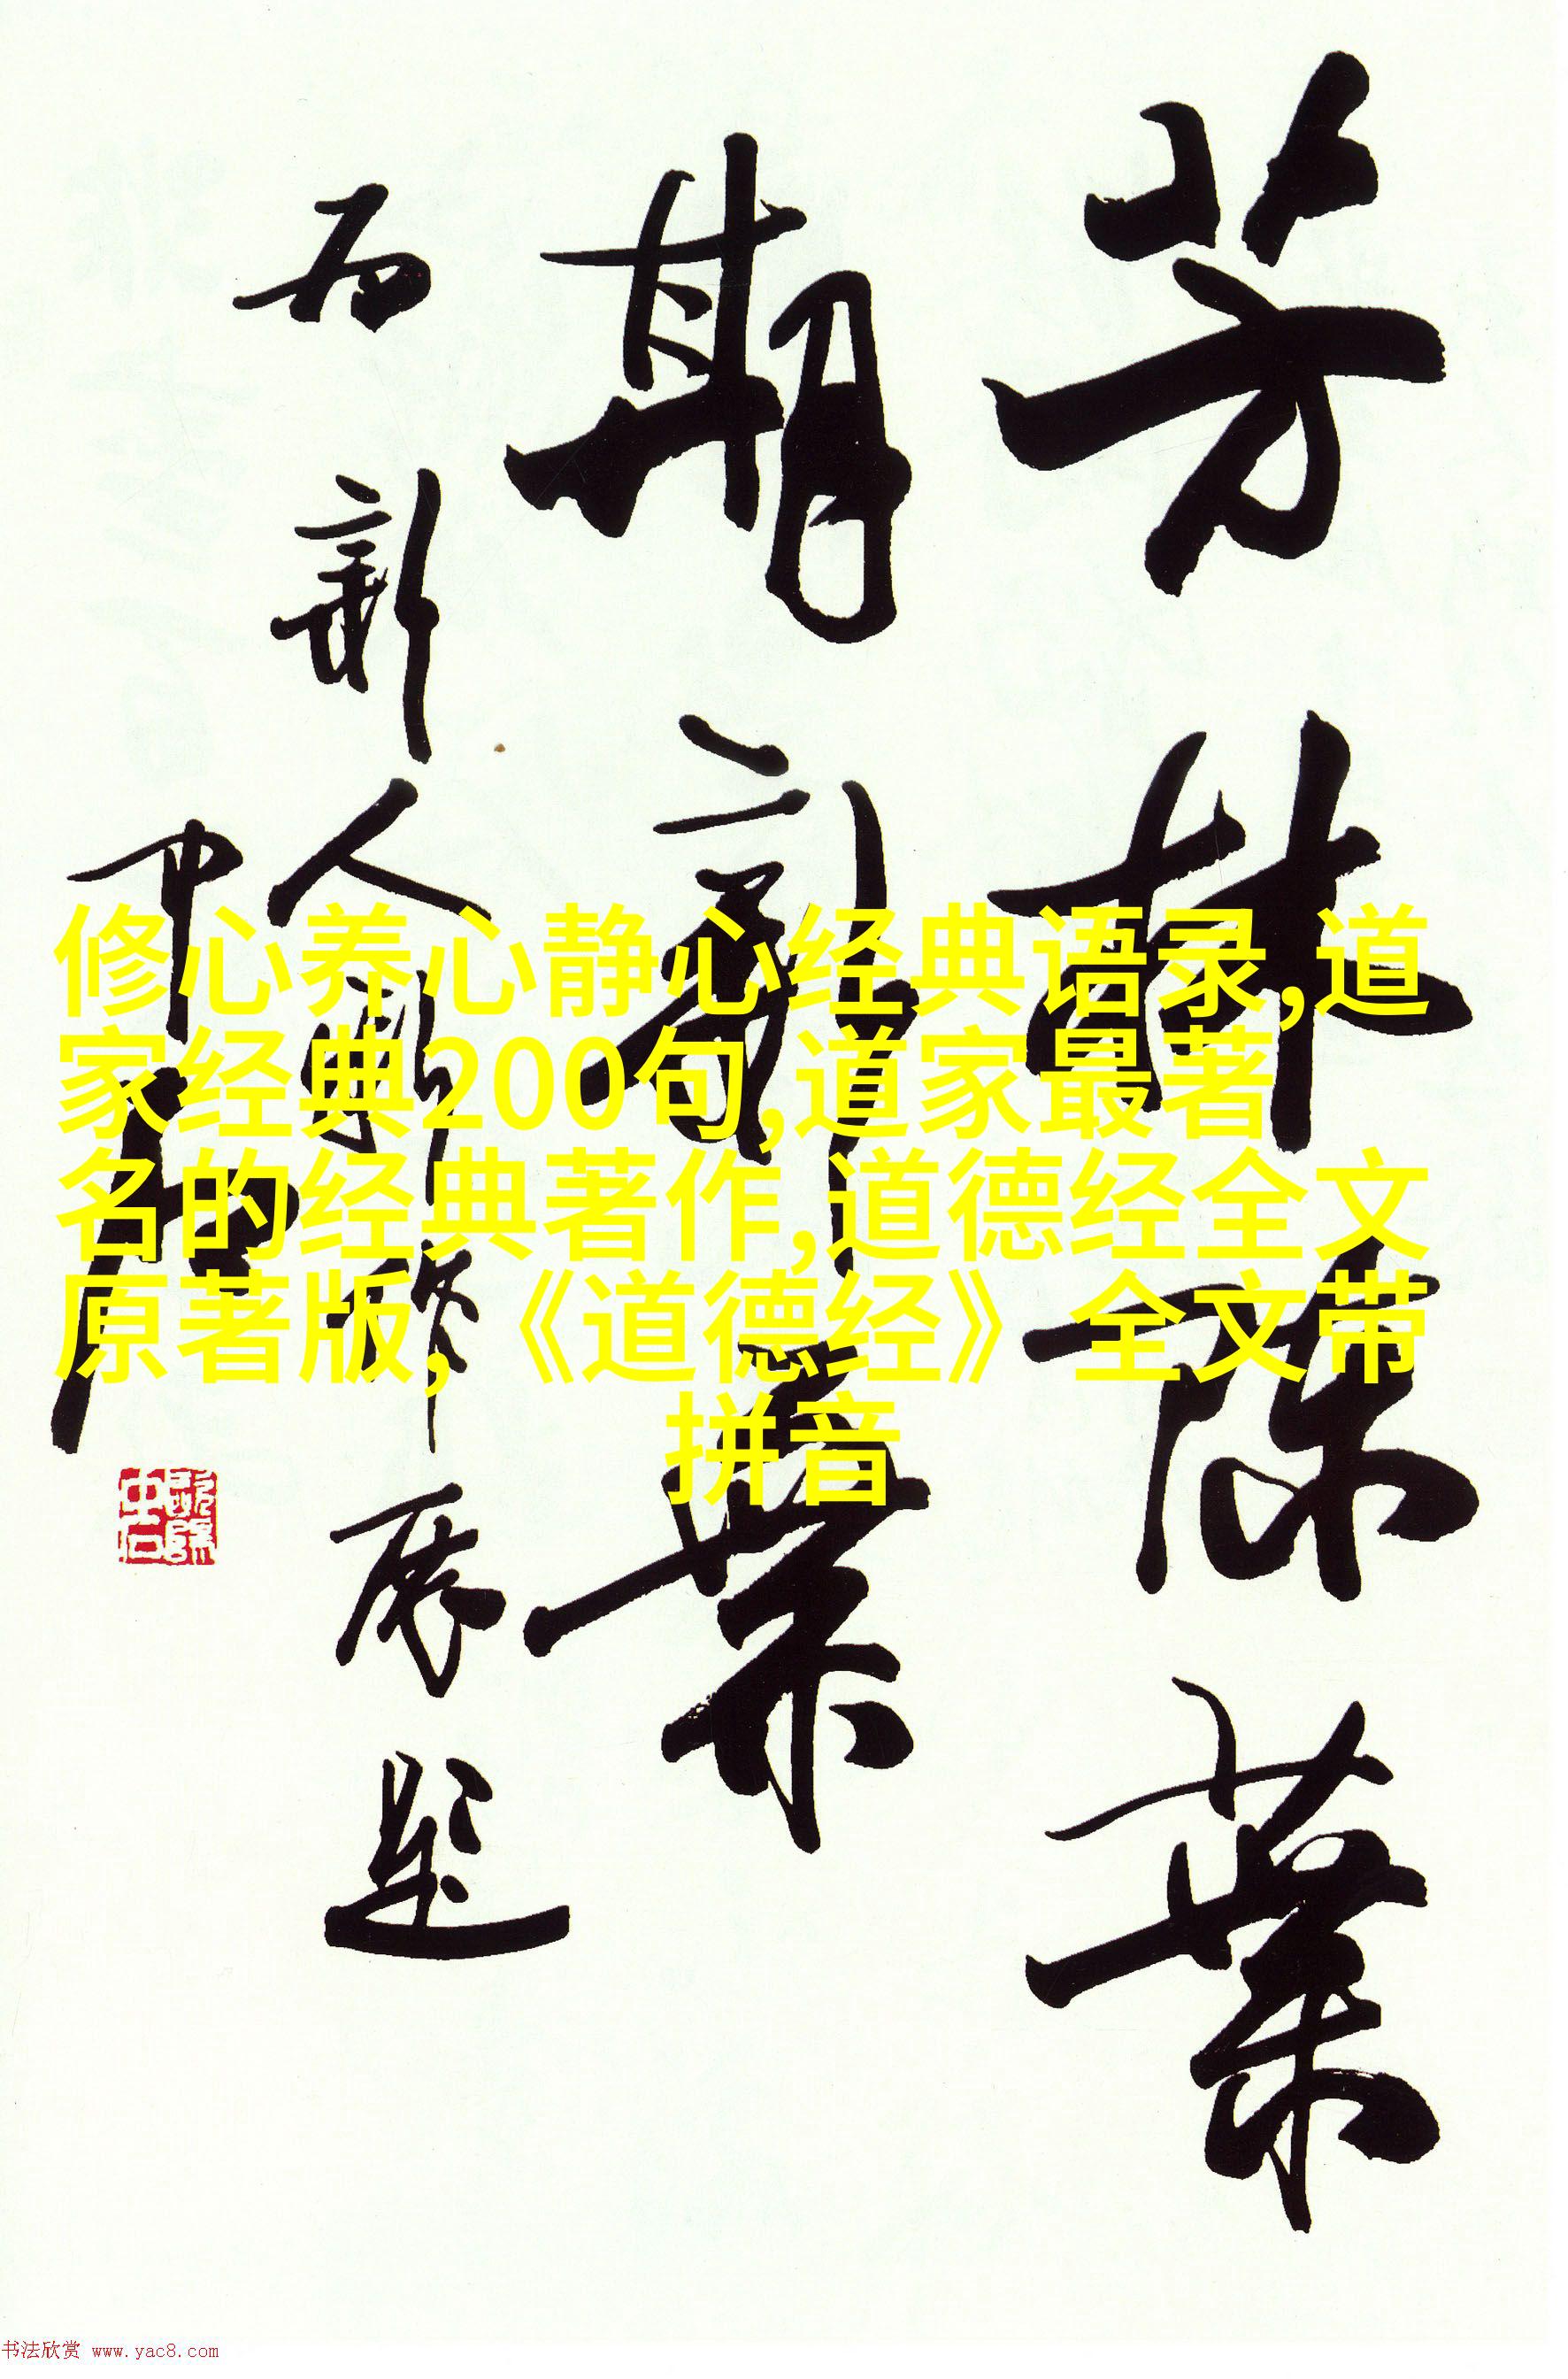 芳林陈叶
期新叶
为新人影作展题
中石
修心养心静心经典语录,道
家经典200句,道家最著
名的经典著作,道德经全文
原著版,《道德经》全文带
拼音
书法欣赏 www.yac8.com